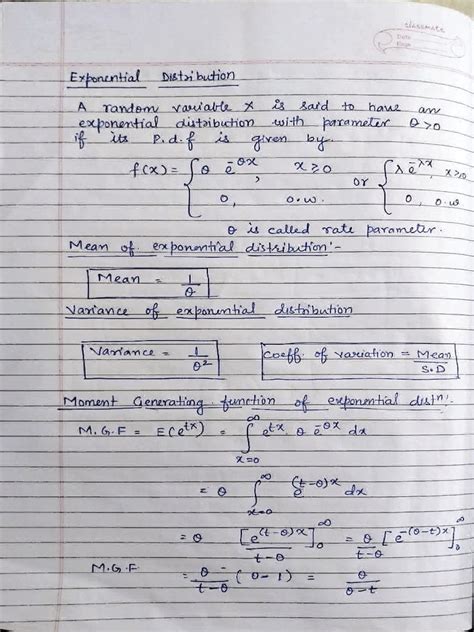 classmate
Date
Page
Exponential Distribution
A random variable X is said to have an
exponential distribution with parameter θ>0
if its p.d.f is given by
f(x) = { θ e^{-θx}, x≥0 or { λ e^{-λx}, x≥0
0, o.w. 0, o.w
θ is called rate parameter.
Mean of exponential distribution:-
Mean = 1/θ
Variance of exponential distribution
Variance = 1/θ² Coeff. of variation = Mean/S.D
Moment Generating function of exponential distn:
M.G.F = E(e^{tx}) = ∫_{x=0}^{∞} e^{tx} θ e^{-θx} dx
= θ ∫_{x=0}^{∞} e^{(t-θ)x} dx
= θ [e^{(t-θ)x}/t-θ]_0^∞ = θ/t-θ [e^{-(θ-t)x}]_0^∞
M.G.F = θ/t-θ (0-1) = θ/θ-t